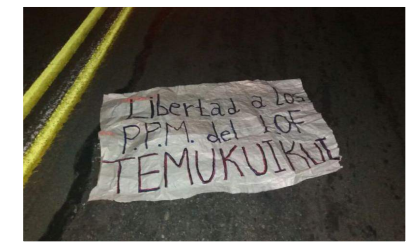 Libertad a los
P.P.M. del LOF
TEMUKUIKUI